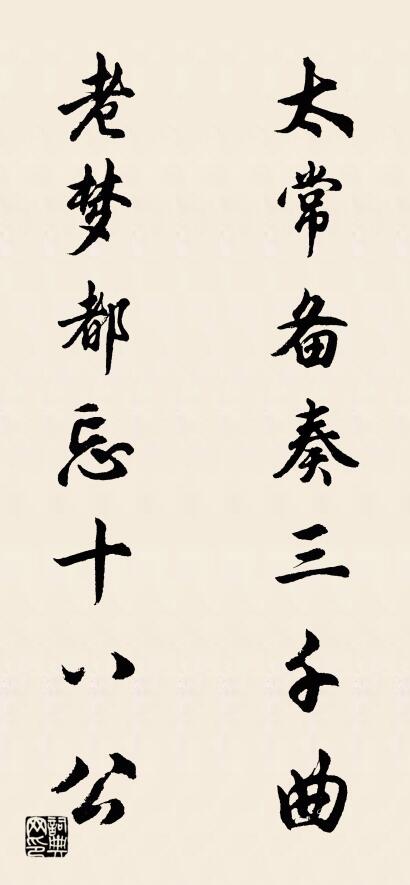 太常备奏三千曲
老梦都忘十八公
词典网印